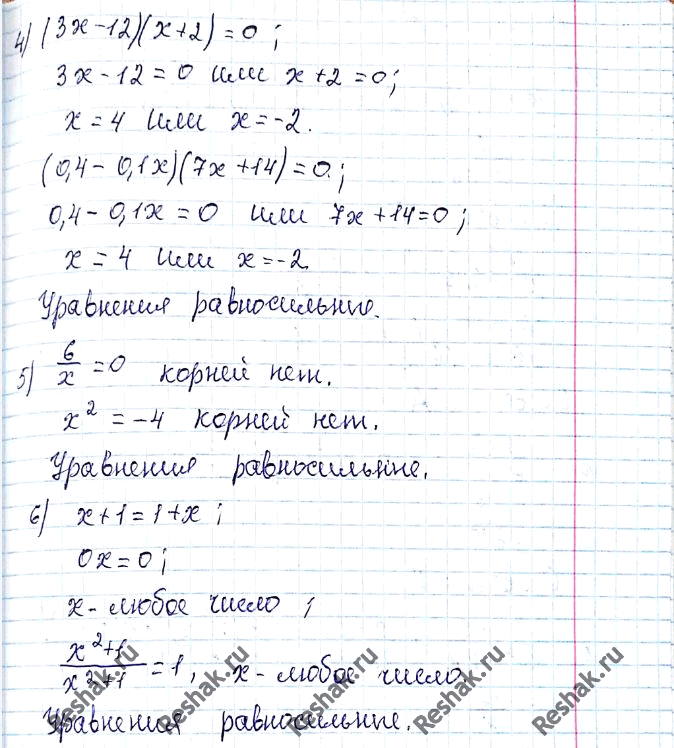 4) (3x-12)(x+2)=0;
3x-12=0 или x+2=0;
x=4 или x=-2.
(0,4-0,1x)(7x+14)=0;
0,4-0,1x=0 или 7x+14=0;
x=4 или x=-2.
Уравнения равносильные.
5) 6/x=0 корней нет.
x²=-4 корней нет.
Уравнения равносильные.
6) x+1=1+x;
0x=0;
x-любое число;
x²+1/x²+1=1, x-любое число.
Уравнения равносильные.
Reshak.ru Reshak.ru Reshak.ru Reshak.ru Reshak.ru